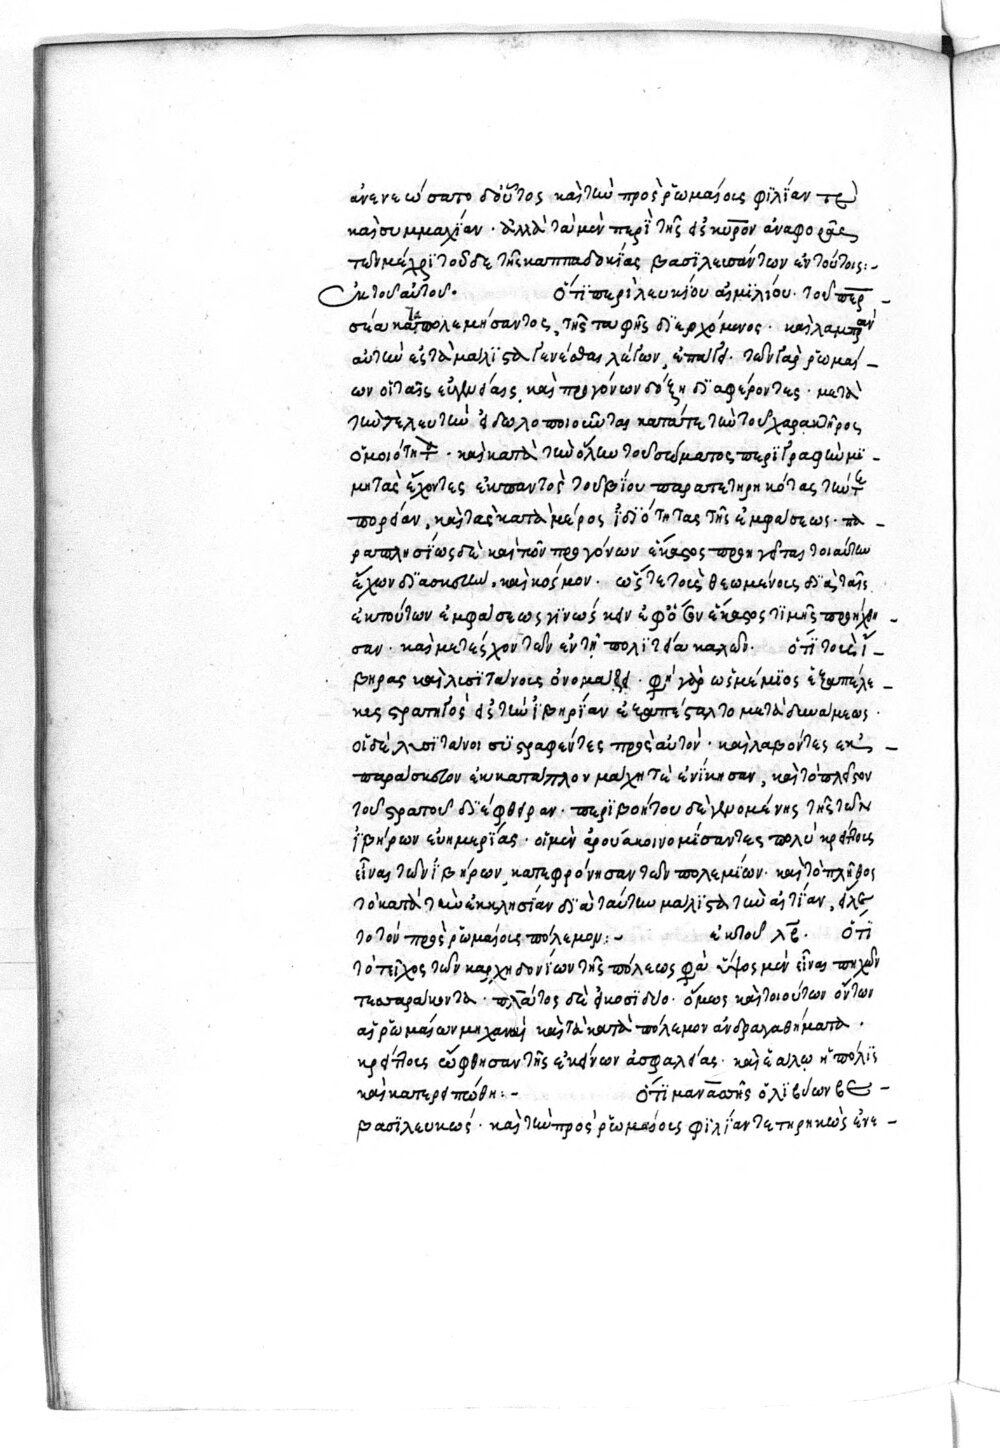 ἀνενεώσατο δοὗτος καὶ τὴν πρὸς ῥωμαίοις φιλίαν τε
καὶ συμμαχίαν· ἀλλὰ τὰ μὲν περὶ τῆς εἰς κῦρον ἀναφορᾶς
τῶν μέχρι τοῦδε τῆς καππαδοκίας βασιλευσάντων ἐν τούτοις:-
Ἐκ τοῦ αὐτοῦ. Ὅτι περὶ λευκίου αἰμιλίου· τοῦ περ-
σέα καταπολεμήσαντος, τῆς ταφῆς διερχόμενος· καὶ λαμπρὰν
αὐτὴν ἐς τὰ μάλιστα γενέσθαι λέγων, ἐπάγει· τῶν γὰρ ῥωμαί-
ων οἱ ταῖς εὐγενείαις, καὶ προγόνων δόξῃ διαφέροντες· μετὰ
τὴν τελευτὴν εἰδωλοποιοῦνται κατά τε τὴν τοῦ χαρακτῆρος
ὁμοιότητα· καὶ κατὰ τὴν ὅλην τοῦ σώματος περιγραφὴν μι-
μητὰς ἔχοντες ἐκ παντὸς τοῦ βίου παρατετηρηκότας τήν τε
πορείαν, καὶ τὰς κατὰ μέρος ἰδιότητας τῆς ἐμφάσεως· πα-
ραπλησίως δὲ καὶ τῶν προγόνων ἕκαστος προηγεῖται τοιαύτην
ἔχων διασκευὴν, καὶ κόσμον· ὥστε τοὺς θεωμένους διὰ τῆς
ἐκ τούτων ἐμφάσεως γινώσκειν ἐφ' ὅσον ἕκαστος τιμῆς προήχθη-
σαν· καὶ μετέσχον τῶν ἐν τῇ πολιτείᾳ καλῶν. Ὅτι τοὺς ἴ-
βηρας καὶ λυσιτανοὺς ὀνομάζει· φησὶ γὰρ ὡς μέμιος ἐξαπέλε-
κες στρατηγὸς εἰς τὴν ἰβηρίαν ἐξαπέσταλτο μετὰ δυνάμεως·
οἱ δὲ λυσιτανοὶ συστραφέντες πρὸς αὐτὸν· καὶ λαβόντες ἐκ
παρασκευον ἐκ κατάπλου μάχῃ τε ἐνίκησαν, καὶ τὸ πλεῖον
τοῦ στρατοῦ διέφθειραν· περιβοήτου δὲ γενομένης τῆς τῶν
ἰβήρων εὐημερίας· οἱ μὲν ἀρουακοὶ νομίσαντες πολὺ κρείττους
εἶναι τῶν ἰβήρων, κατεφρόνησαν τῶν πολεμίων· καὶ τὸ πλῆθος
τὸ κατὰ τὴν ἐκκλησίαν διὰ ταύτην μάλιστα τὴν αἰτίαν, εἵλε
το τὸν πρὸς ῥωμαίους πόλεμον:- ἐκ τοῦ λβ. Ὅτι
τὸ τεῖχος τῶν καρχηδονίων τῆς πόλεως φησὶ ὕψος μὲν εἶναι πηχῶν
τεσσαράκοντα· πλάτος δὲ εἴκοσι δύο· ὅμως καὶ τοιούτων ὄντων
αἱ ῥωμαίων μηχαναὶ καὶ τὰ κατὰ πόλεμον ἀνδραγαθήματα·
κρείττους ὤφθησαν τῆς ἐκείνων ἀσφαλείας· καὶ ἑάλω ἡ πόλις
καὶ κατερείπωθη:- Ὅτι μανάσσης
βασιλευκὼς· καὶ τὴν πρὸς ῥωμαίους φιλίαν τετηρηκὼς ἐνε-